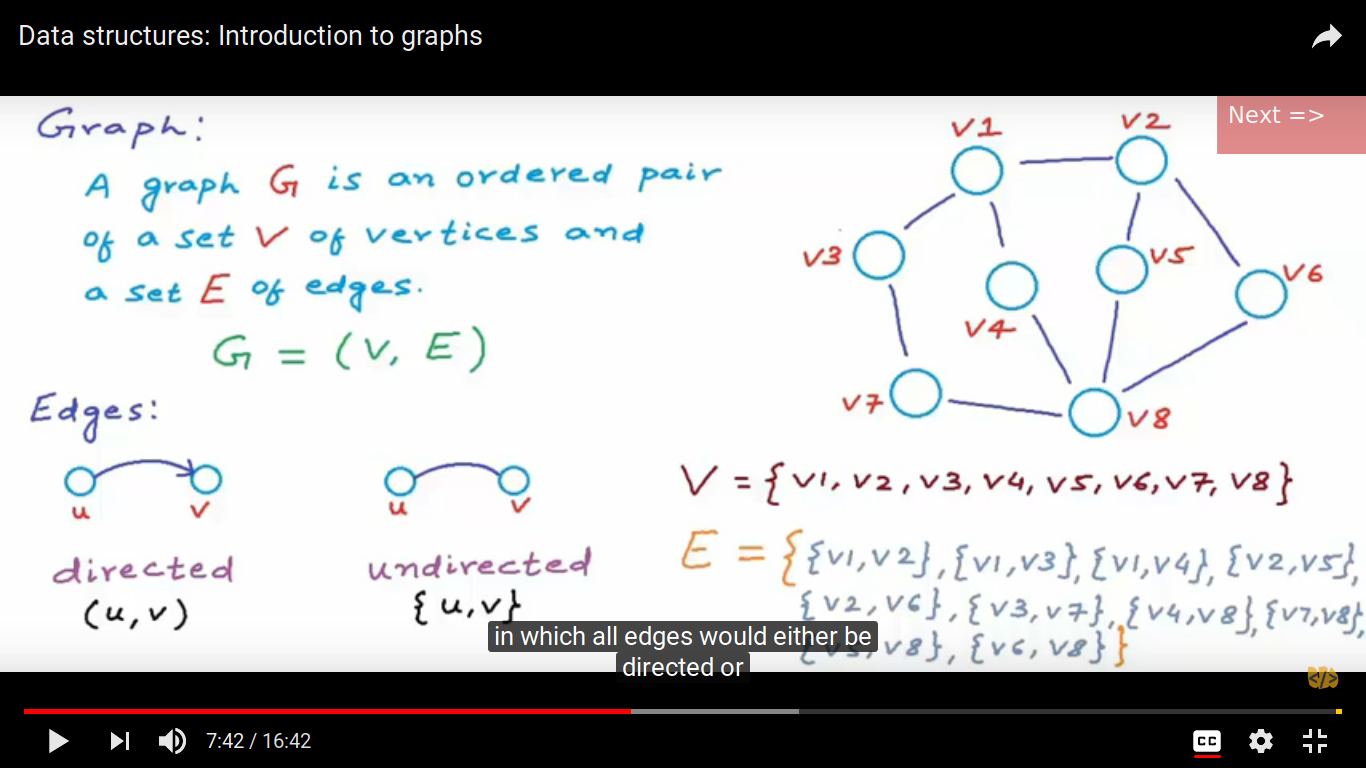 Data structures: Introduction to graphs
Next =>
Graph:
A graph G is an ordered pair
of a set V of vertices and
a set E of edges.
G = (V, E)
Edges:
u v
directed
(u, v)
u v
undirected
{u, v}
v1
v2
v3
v4
v5
v6
v7
v8
V = {v1, v2, v3, v4, v5, v6, v7, v8}
E = {{v1, v2}, {v1, v3}, {v1, v4}, {v2, v5},
{v2, v6}, {v3, v7}, {v4, v8}, {v7, v8},
v8}, {v6, v8}}
in which all edges would either be
directed or
</>
7:42 / 16:42
CC